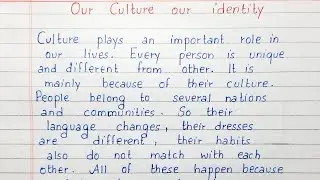 Our Culture our identity
Culture plays an important role in
our lives. Every person is unique
and different from other. It is
mainly because of their culture.
People belong to several nations
and communities. So their
language changes, their dresses
are different, their habits
also do not match with each
other. All of these happen because